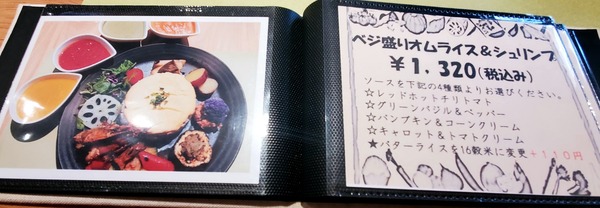 ベジ盛りオムライス&シュリンプ
¥1,320(税込み)
ソースを下記の4種類よりお選びください。
☆レッドホットチリトマト
☆グリーンバジル&ペッパー
☆パンプキン&コーンクリーム
☆キャロット&トマトクリーム
★バターライスを16穀米に変更+110円